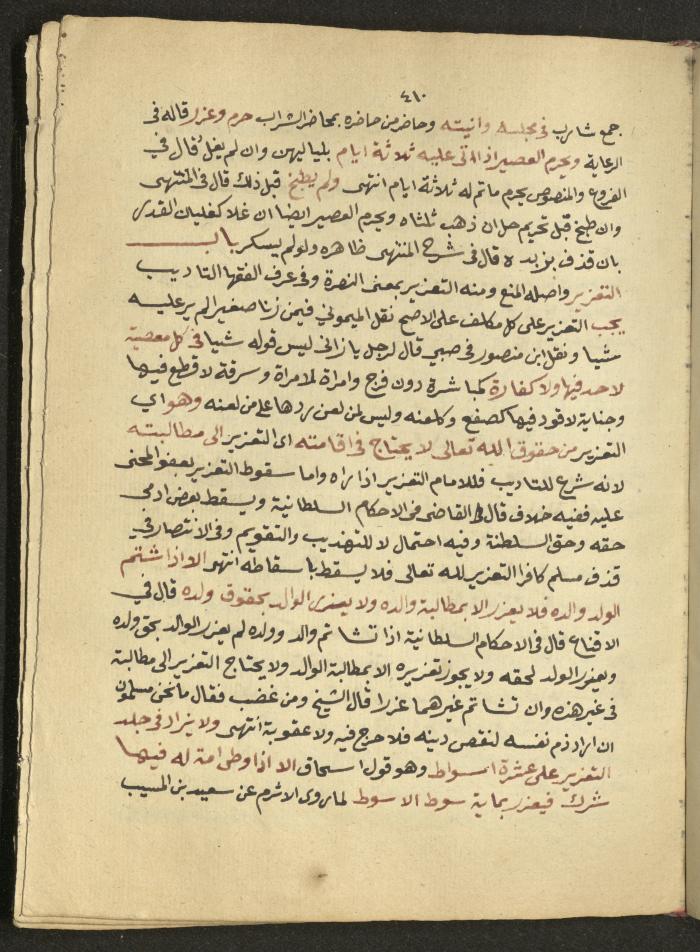 ٤١٠
جمع شارب في مجلسه وانيته وحاضر من حاضره بمحاضر الشراب حرم وعزر قاله في
الرعاية ويحرم العصير اذا اتى عليه ثلاثة ايام بلياليهن وان لم يغل قال في
الفروع والمنصوص يحرم ما تم له ثلاثة ايام انتهى ولم يطبخ قبل ذلك قال في المنتهى
وان طبخ قبل تحريم حل ان ذهب ثلثاه ويحرم العصير ايضا ان غلا كغليان القدر
بان قذف بزبده قال في شرح المنتهى ظاهره ولو لم يسكر باب
التعزير واصله المنع ومنه التعزير بمعنى النصرة وفي عرف الفقها التاديب
يجب التعزير على كل مكلف على الاصح نقل الميموني فيمن زنا صغيرا لم ير عليه
شيا ونقل ابن منصور في صبي قال لرجل يا زاني ليس قوله شيا في كل معصية
لا حد فيها ولا كفارة كمباشرة دون فرج وامراة لامراة وسرقة لا قطع فيها
وجناية لا قود فيها كصفع وكلعنه وليس لمن لعن ردها على من لعنه وهو اي
التعزير من حقوق الله تعالى لا يحتاج في اقامته اى التعزير الى مطالبته
لانه شرع للتاديب فللامام التعزير اذا راه واما سقوط التعزير بعفو المجنى
عليه ففيه خلاف قال القاضي في الاحكام السلطانية ويسقط بعض ادمي
حقه وحق السلطنة وفيه احتمال لا للتهذيب والتقويم وفي الانتصار في
قذف مسلم كافرا التعزير لله تعالى فلا يسقط باسقاطه انتهى الا اذا شتم
الولد والده فلا يعزر الا بمطالبة والده ولا يعزر الوالد بحقوق ولده قال في
الاقناع قال في الاحكام السلطانية اذا تشاتم والد وولده لم يعزر الوالد بحق ولده
ويعزر الولد لحقه ولا يجوز تعزيره الا بمطالبة الوالد ولا يحتاج التعزير الى مطالبة
في غير هذه وان تشاتم غيرهما عزرا قال الشيخ ومن غضب فقال ما نحن مسلمون
ان اراد ذم نفسه لنقص دينه فلا حرج فيه ولا عقوبة انتهى ولا يزاد في جلد
التعزير على عشرة اسواط وهو قول اسحاق الا اذا وطى امة له فيها
شرك فيعزر بماية سوط الا سوط لما روى الاثرم عن سعيد بن المسيب